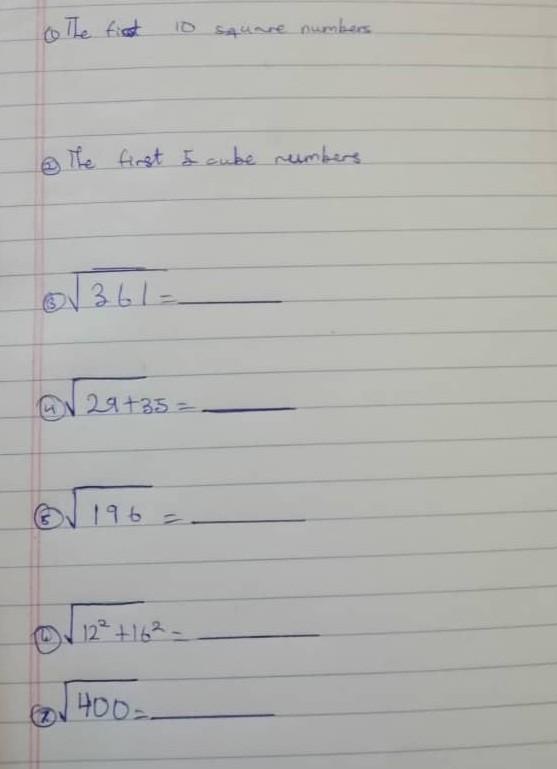 ① The first 10 square numbers
② The first 5 cube numbers
③ √361 = ______
④ √29+35 = ______
⑤ √196 = ______
⑥ √12²+16² = ______
⑦ √400 = ______